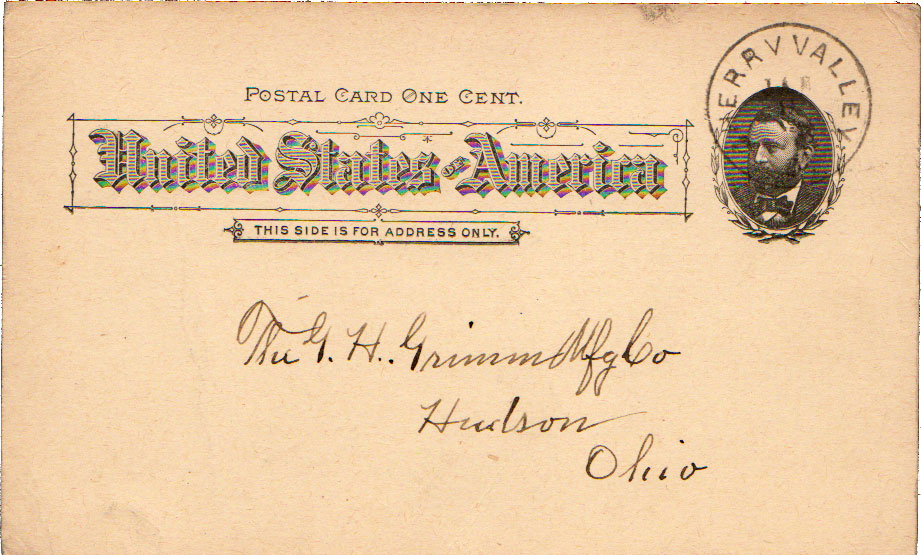 ERRY VALLEY
POSTAL CARD ONE CENT.
United States of America
THIS SIDE IS FOR ADDRESS ONLY.
The G. H. Grimm Mfg Co
Hudson
Ohio